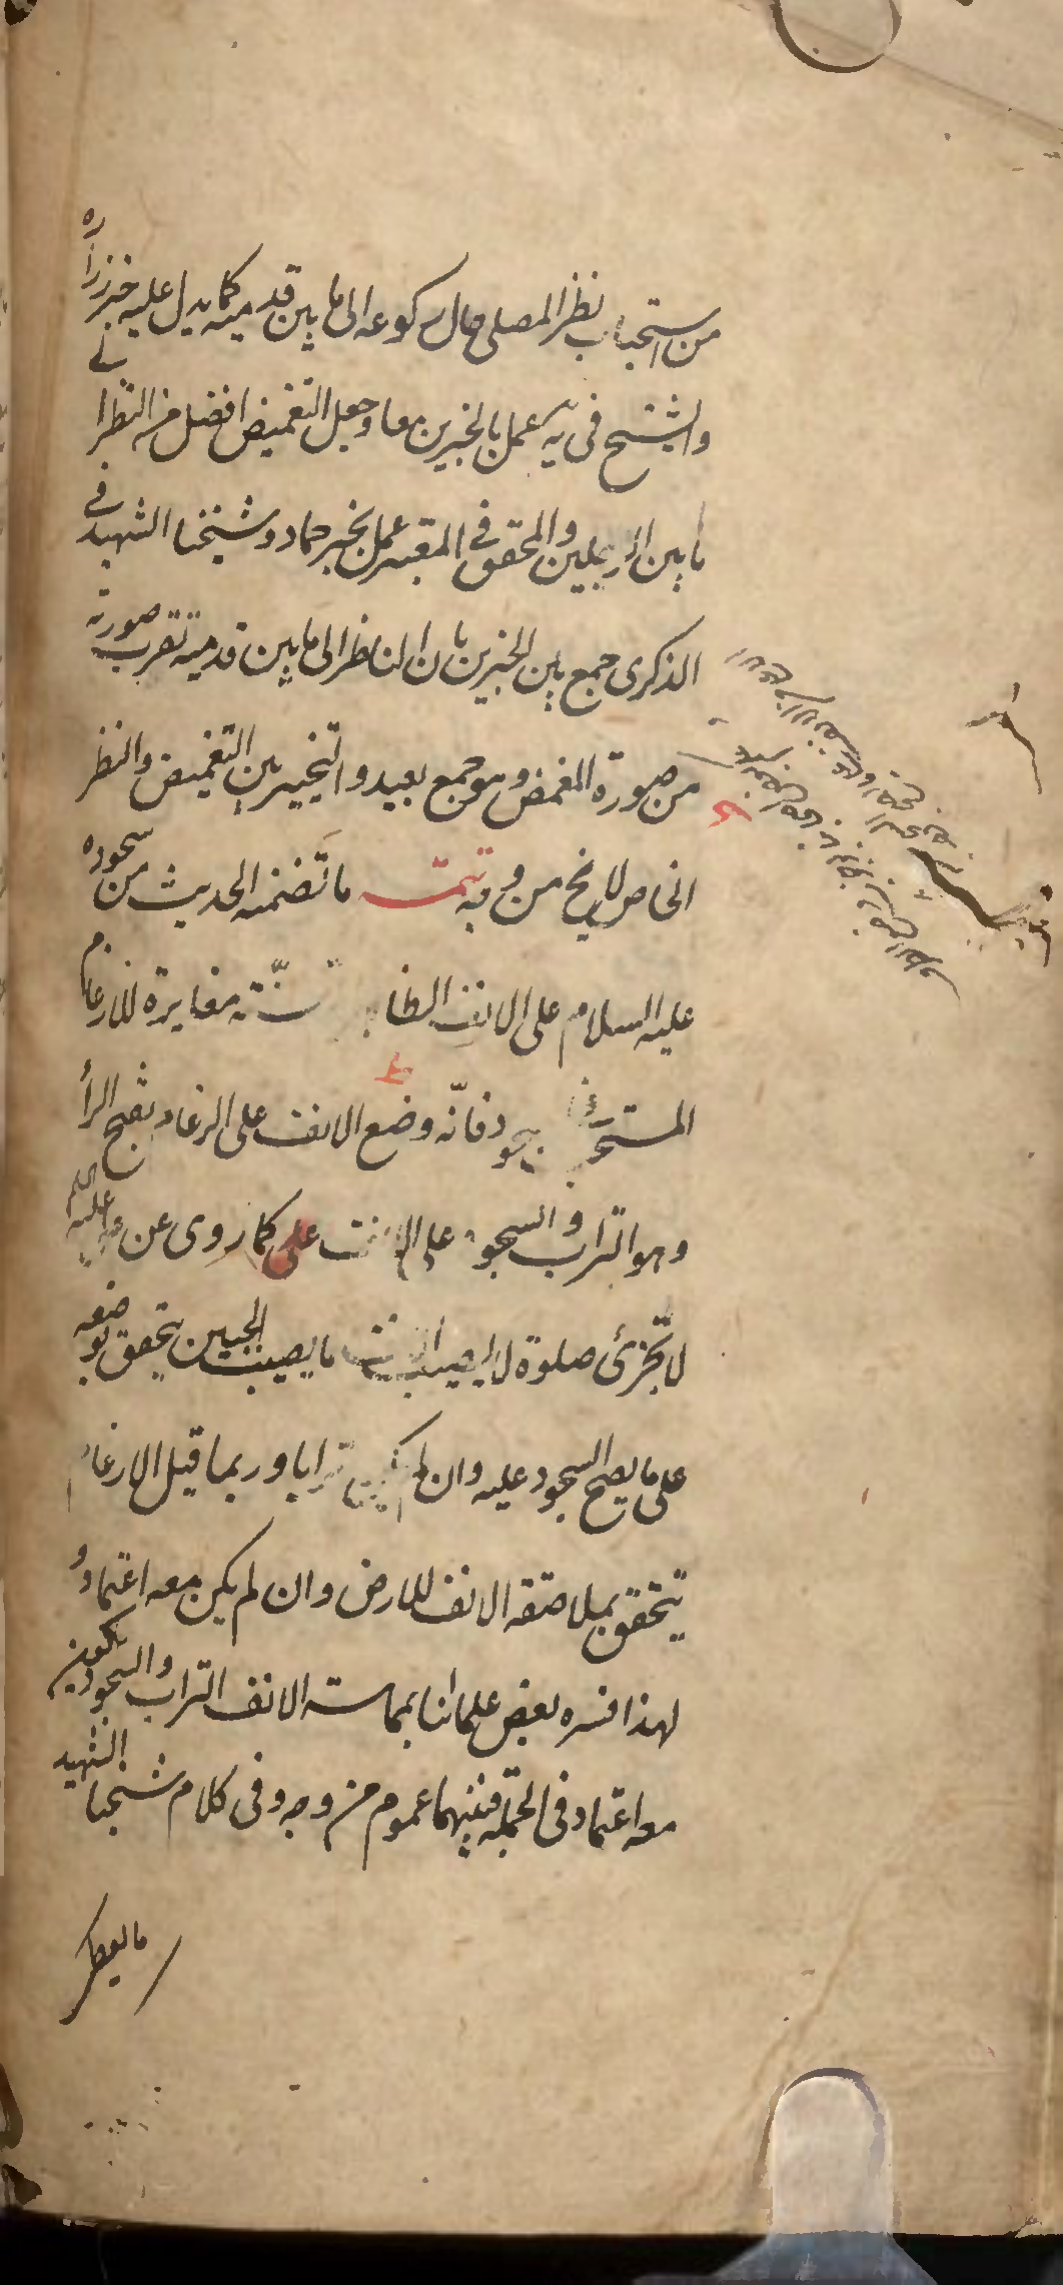 من استحباب نظر المصلى حال ركوعه الى ما بين قدميه كما يدل عليه خبر زراره
والشيخ فى يه عمل بالخبرين معا وجعل التغميض افضل من النظر الى
ما بين الرجلين والمحقق فى المعتبر عمل بخبر حماد وشيخنا الشهيد فى
الذكرى جمع بين الخبرين بان الناظر الى ما بين قدميه تقرب صورته
من صورة المغمض وهو جمع بعيد والتخيير بين التغميض والنظر
الخاص لا يخ من وجه تتمة ما تضمنه الحديث من سجوده
عليه السلام على الانف الظا سنّة مغايرة للارغام
المستحب سجود فانّه وضع الانف على الرغام بفتح الرأ
وهو التراب والسجود على الانف كما روى عن على عليه السلم
لا تجزئ صلوة لا يصيب الانف ما يصيب الجبين يتحقق بوضعه
على ما يصح السجود عليه وان لم يكن ترابا وربما قيل الارغام
يتحقق بملاصقة الانف للارض وان لم يكن معه اعتماد و
لهذا فسره بعض علمائنا بمماسة الانف التراب والسجود يكون
معه اعتماد فى الجملة فبينهما عموم من وجه وفى كلام شيخنا الشهيد
ما يعطى